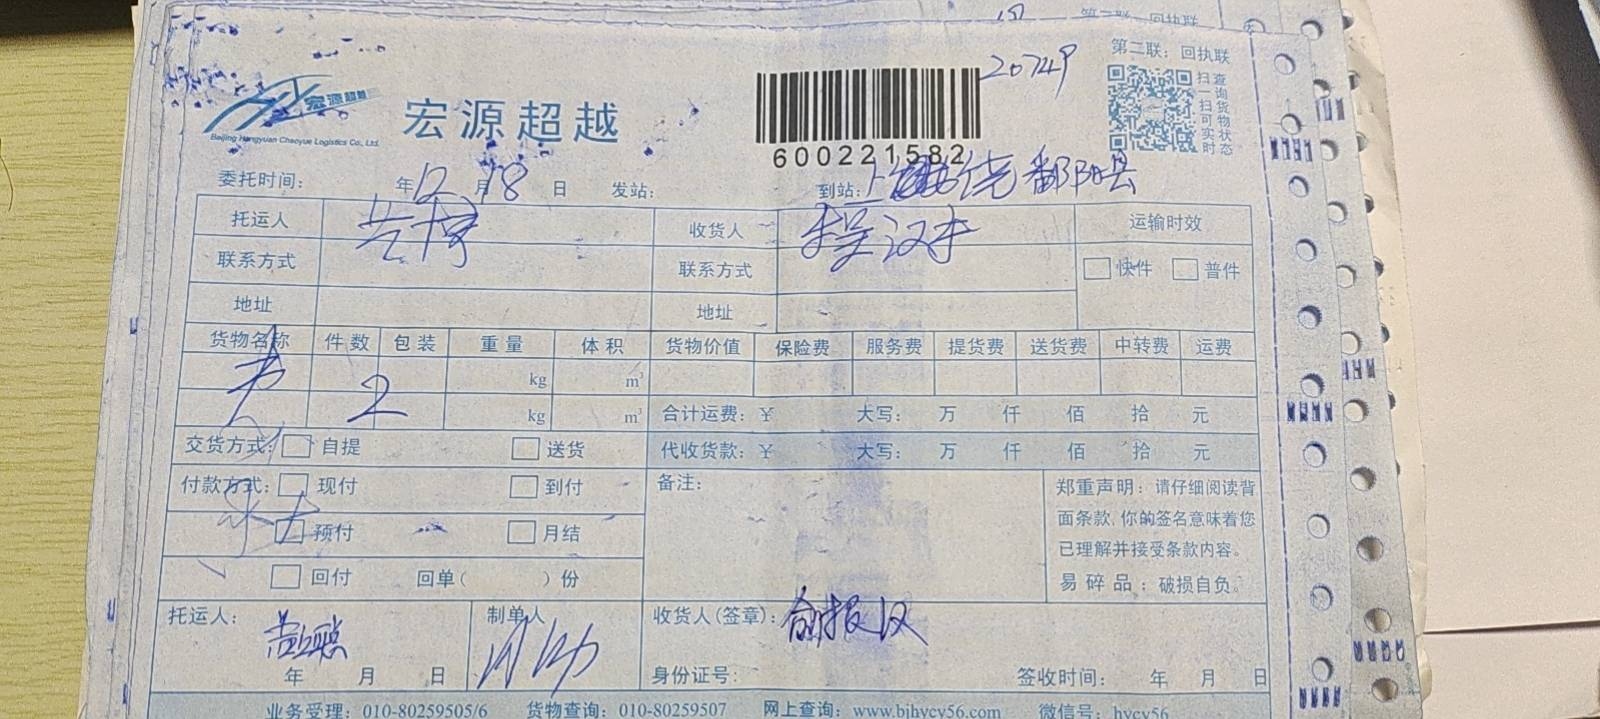 第二联：回执联
20749
宏源超越
Beijing Hongyuan Chaoyue Logistics Co., Ltd.
宏源超越
600221582
扫一扫可实时
查询货物状态
委托时间： 年12月18日 发站： 到站： 饶鄱阳县
托运人 收货人 运输时效
联系方式 联系方式 快件 普件
地址 地址
货物名称 件数 包装 重量 体积 货物价值 保险费 服务费 提货费 送货费 中转费 运费
kg m³
2 kg m³ 合计运费：¥ 大写： 万 仟 佰 拾 元
交货方式： 自提 送货 代收货款：¥ 大写： 万 仟 佰 拾 元
付款方式： 现付 到付 备注： 郑重声明：请仔细阅读背
面条款,你的签名意味着您
预付 月结
已理解并接受条款内容。
回付 回单( )份 易碎品：破损自负。
托运人： 制单人 收货人(签章)：
年 月 日 身份证号： 签收时间： 年 月 日
业务受理：010-80259505/6 货物查询：010-80259507 网上查询：www.bjhycy56.com 微信号：hycy56